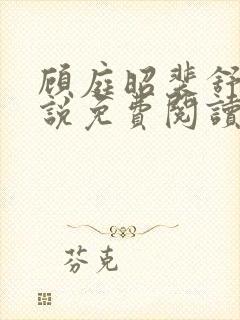 顾庭昭裴舒
說免費閱讀
芬克